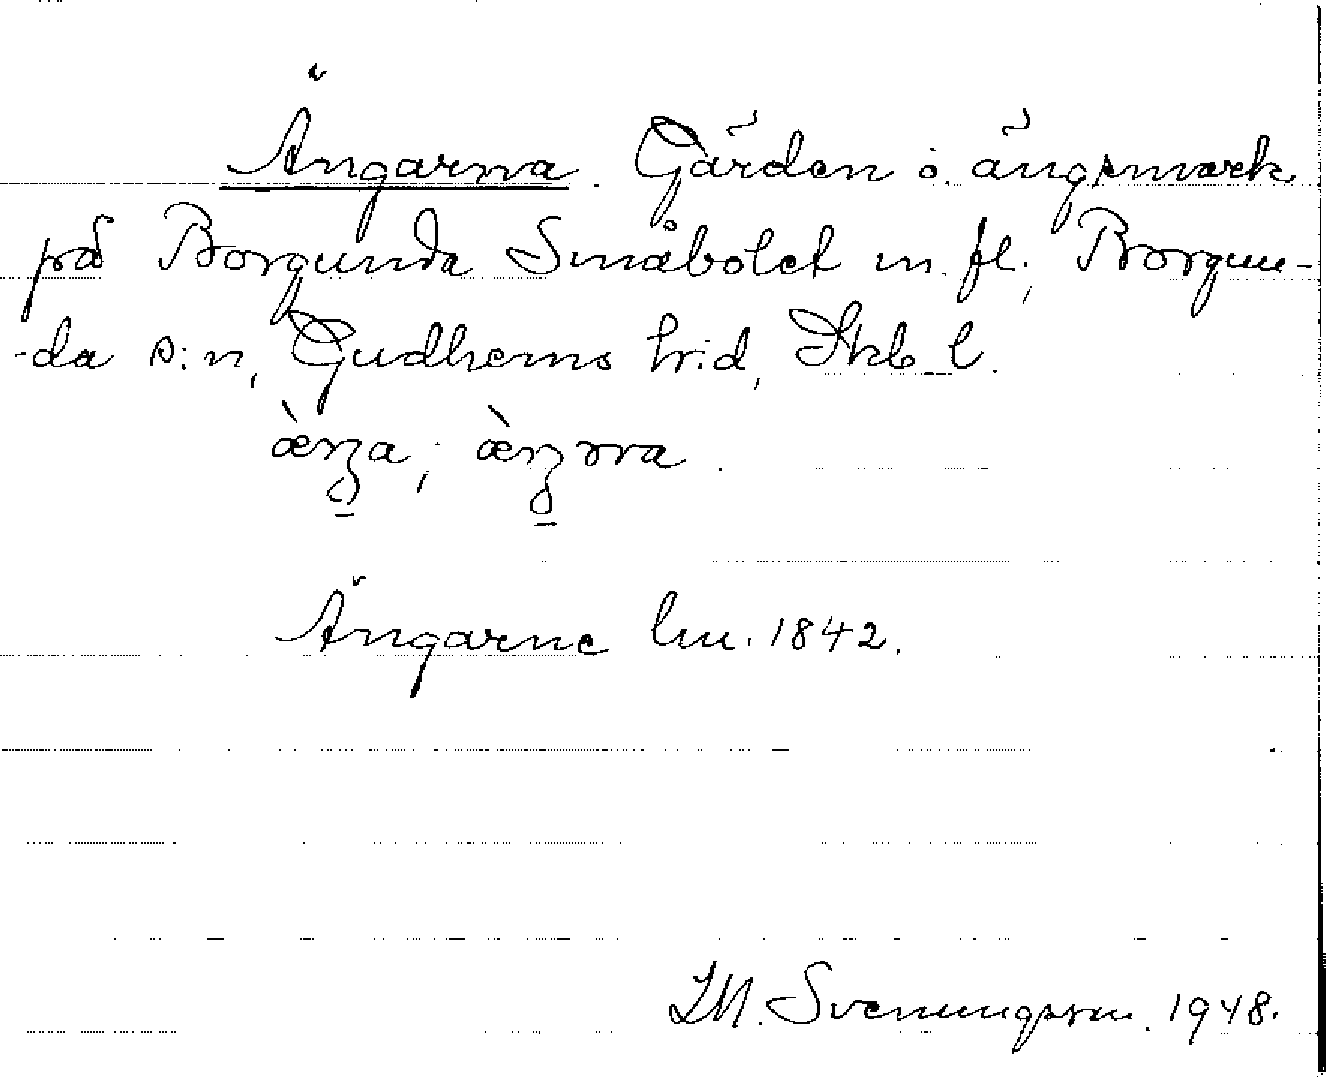 Ängarna. Gärden o. ängsmark
på Borgunda Småbolet m. fl., Borgun-
-da s:n, Gudhems h:d, Skb. l.
Ängarne lm. 1842.
M. Svenungsson. 1948.